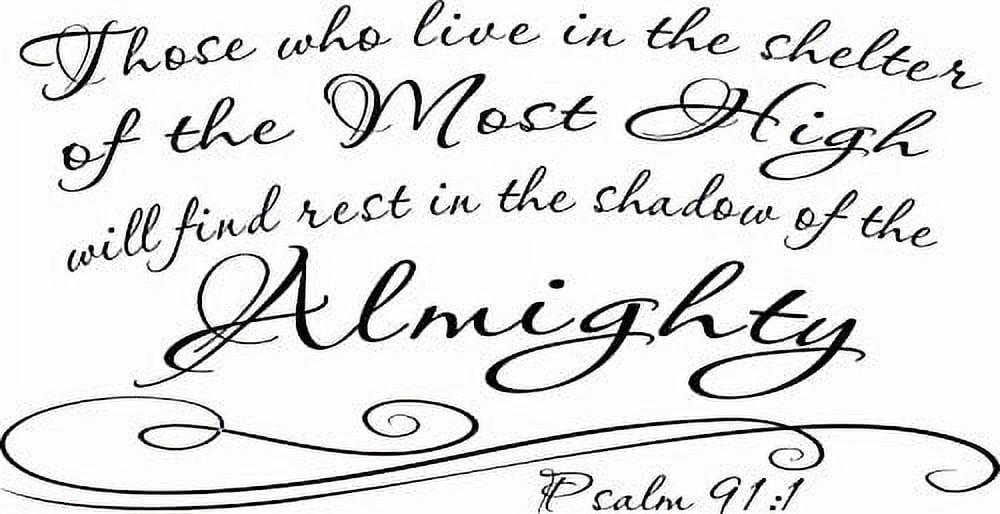 Those who live in the shelter
of the Most High
will find rest in the shadow of the
Almighty
Psalm 91:1